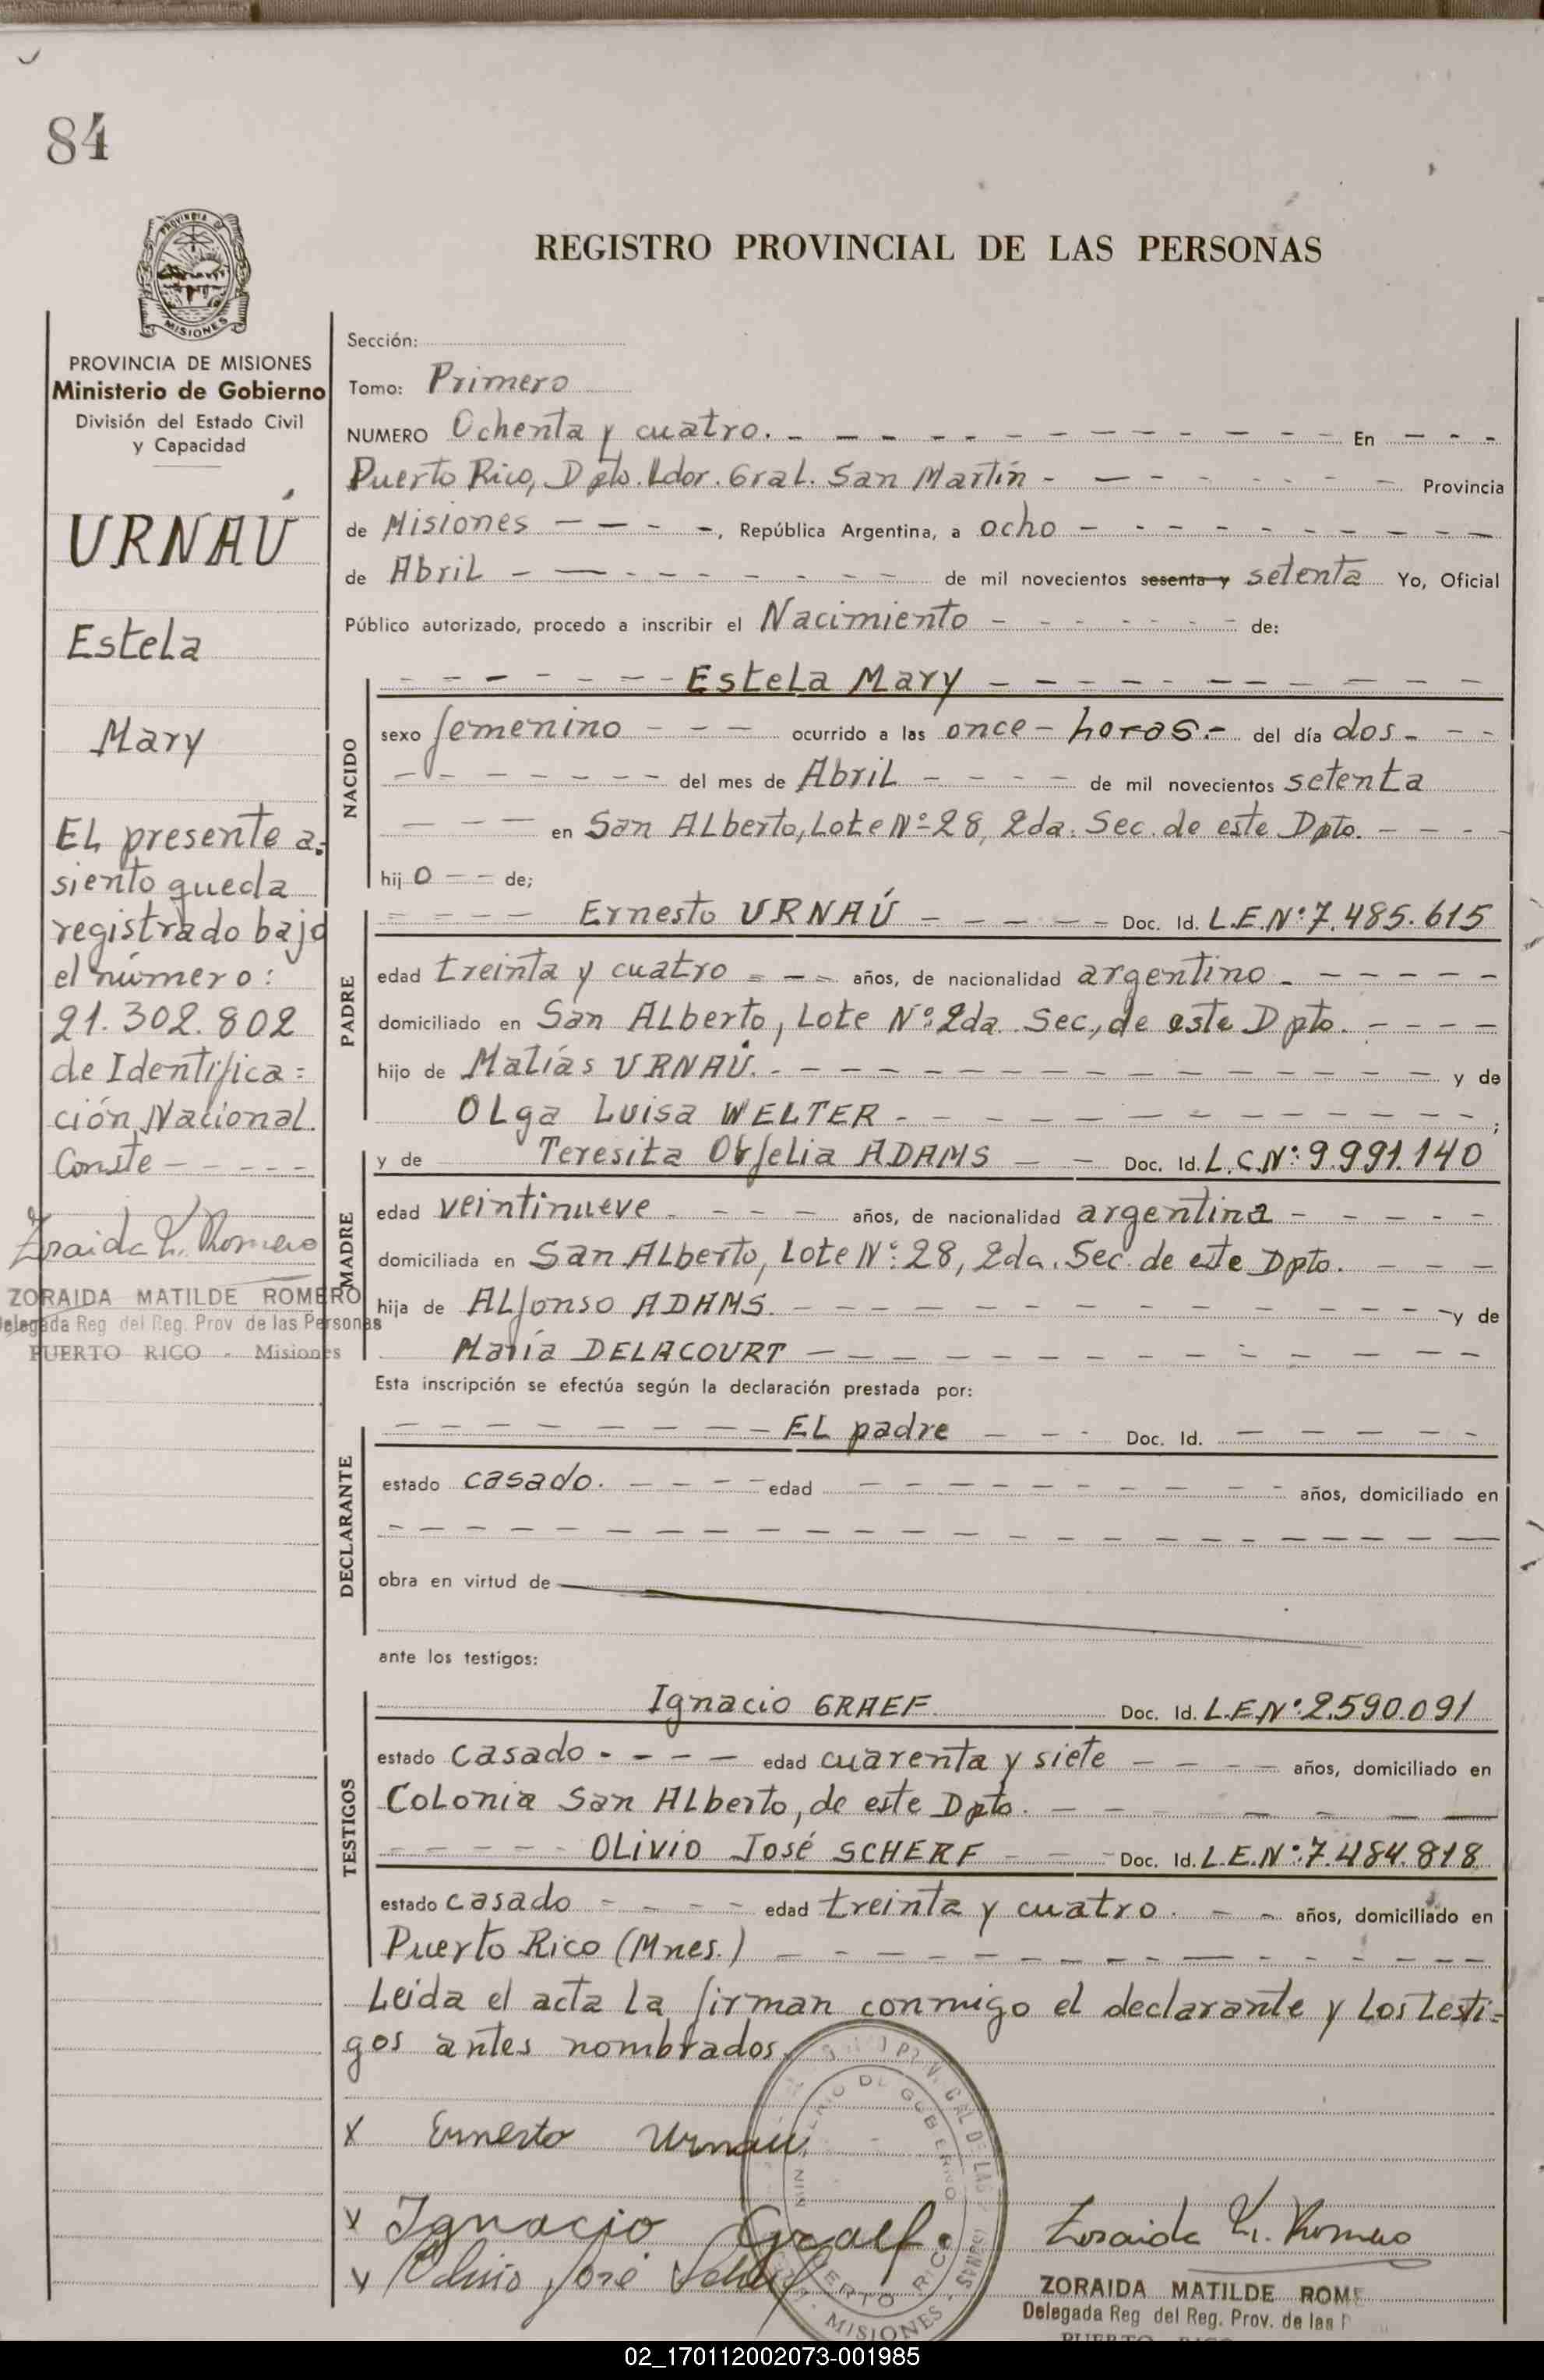 84
PROVINCIA
MISIONES
PROVINCIA DE MISIONES
Ministerio de Gobierno
División del Estado Civil
y Capacidad
URNAÚ
Estela
Mary
EL presente a=
siento queda
registrado bajo
el número:
21.302.802
de Identifica=
ción Nacional.
Conste - - - - -
Zoraida M. Romero
ZORAIDA MATILDE ROMERO
Delegada Reg del Reg. Prov de las Personas
PUERTO RICO - Misiones
REGISTRO PROVINCIAL DE LAS PERSONAS
Sección:
Tomo: Primero
NUMERO Ochenta y cuatro. - - - - - - - - - - - - En - - - -
Puerto Rico, Dpto. Ldor. Gral. San Martín - - - - - - - - Provincia
de Misiones - - - - -, República Argentina, a ocho - - - - - - - - - -
de Abril - - - - - - - - - - de mil novecientos sesenta y setenta Yo, Oficial
Público autorizado, procedo a inscribir el Nacimiento - - - - - - - de:
NACIDO
- - - - - - - Estela Mary - - - - - - - - - -
sexo femenino - - - ocurrido a las once - horas.- del día dos - - -
- - - - - - - del mes de Abril - - - - - de mil novecientos setenta
- - - en San ALberto, Lote Nº 28, 2da. Sec. de este Dpto. - - - -
hij o - - de;
PADRE
- - - - Ernesto URNAÚ - - - - - Doc. Id. L.E.Nº:7.485.615
edad treinta y cuatro - - - años, de nacionalidad argentino - - - - - -
domiciliado en San ALberto, Lote Nº: 2da. Sec., de este Dpto. - - - -
hijo de Matías URNAÚ. - - - - - - - - - - - - - y de
OLga Luisa WELTER - - - - - - - - - - - ;
MADRE
y de Teresita Ofelia ADAMS - - Doc. Id. L.C.Nº:9.991.140
edad veintinueve - - - - años, de nacionalidad argentina - - - - -
domiciliada en San ALberto, Lote Nº: 28, 2da. Sec. de este Dpto. - - -
hija de ALfonso ADAMS. - - - - - - - - - - - - - y de
María DELACOURT - - - - - - - - - - - -
Esta inscripción se efectúa según la declaración prestada por:
DECLARANTE
- - - - - - - - EL padre - - - Doc. Id. - - - - -
estado casado. - - - - edad - - - - - - - - - años, domiciliado en
- - - - - - - - - - - - - - - - - - - -
obra en virtud de
ante los testigos:
TESTIGOS
Ignacio GRAEF. Doc. Id. L.E.Nº:2.590.091
estado casado - - - - edad cuarenta y siete - - - - años, domiciliado en
Colonia San ALberto, de este Dpto. - - - - - - - -
- - - - - OLivio José SCHERF - - - Doc. Id. L.E.Nº:7.484.818
estado casado - - - - edad treinta y cuatro. - - años, domiciliado en
Puerto Rico (Mnes.) - - - - - - - - - - - - -
Leída el acta la firman conmigo el declarante y los testi=
gos antes nombrados.
X Ernesto Urnau
X Ignacio Graef.
X Olivio José Scherf
MINISTERIO DE GOBIERNO
PUERTO RICO
MISIONES
Zoraida M. Romero
ZORAIDA MATILDE ROME
Delegada Reg del Reg. Prov. de las P
PUERTO RICO
02_170112002073-001985